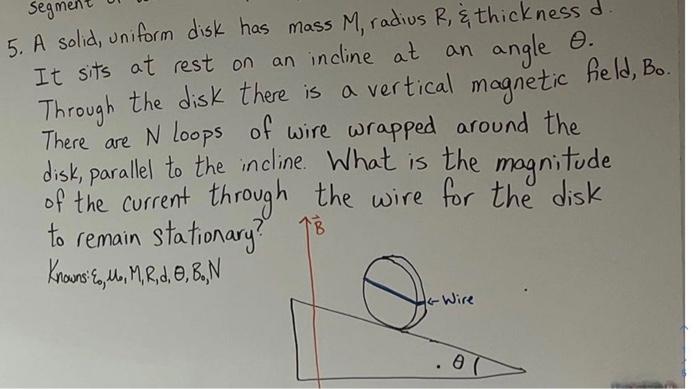 segment
5. A solid, uniform disk has mass M, radius R, & thickness d.
It sits at rest on an incline at an angle θ.
Through the disk there is a vertical magnetic field, B₀.
There are N loops of wire wrapped around the
disk, parallel to the incline. What is the magnitude
of the current through the wire for the disk
to remain stationary?
Knowns: ε₀, μ₀, M, R, d, θ, B₀, N
B⃗
← Wire
θ